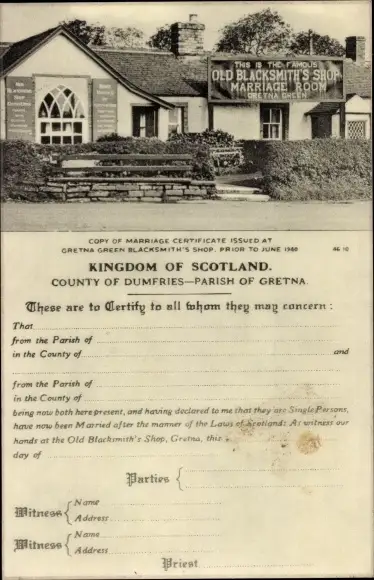 THIS IS THE FAMOUS
OLD BLACKSMITH'S SHOP
MARRIAGE ROOM
GRETNA GREEN
COPY OF MARRIAGE CERTIFICATE ISSUED AT
GRETNA GREEN BLACKSMITH'S SHOP, PRIOR TO JUNE 1940
KINGDOM OF SCOTLAND.
COUNTY OF DUMFRIES—PARISH OF GRETNA.
These are to Certify to all whom they may concern :
That
from the Parish of
in the County of and
from the Parish of
in the County of
being now both here present, and having declared to me that they are Single Persons,
have now been Married after the manner of the Laws of Scotland: As witness our
hands at the Old Blacksmith's Shop, Gretna, this
day of
Parties
Witness
Name
Address
Witness
Name
Address
Priest